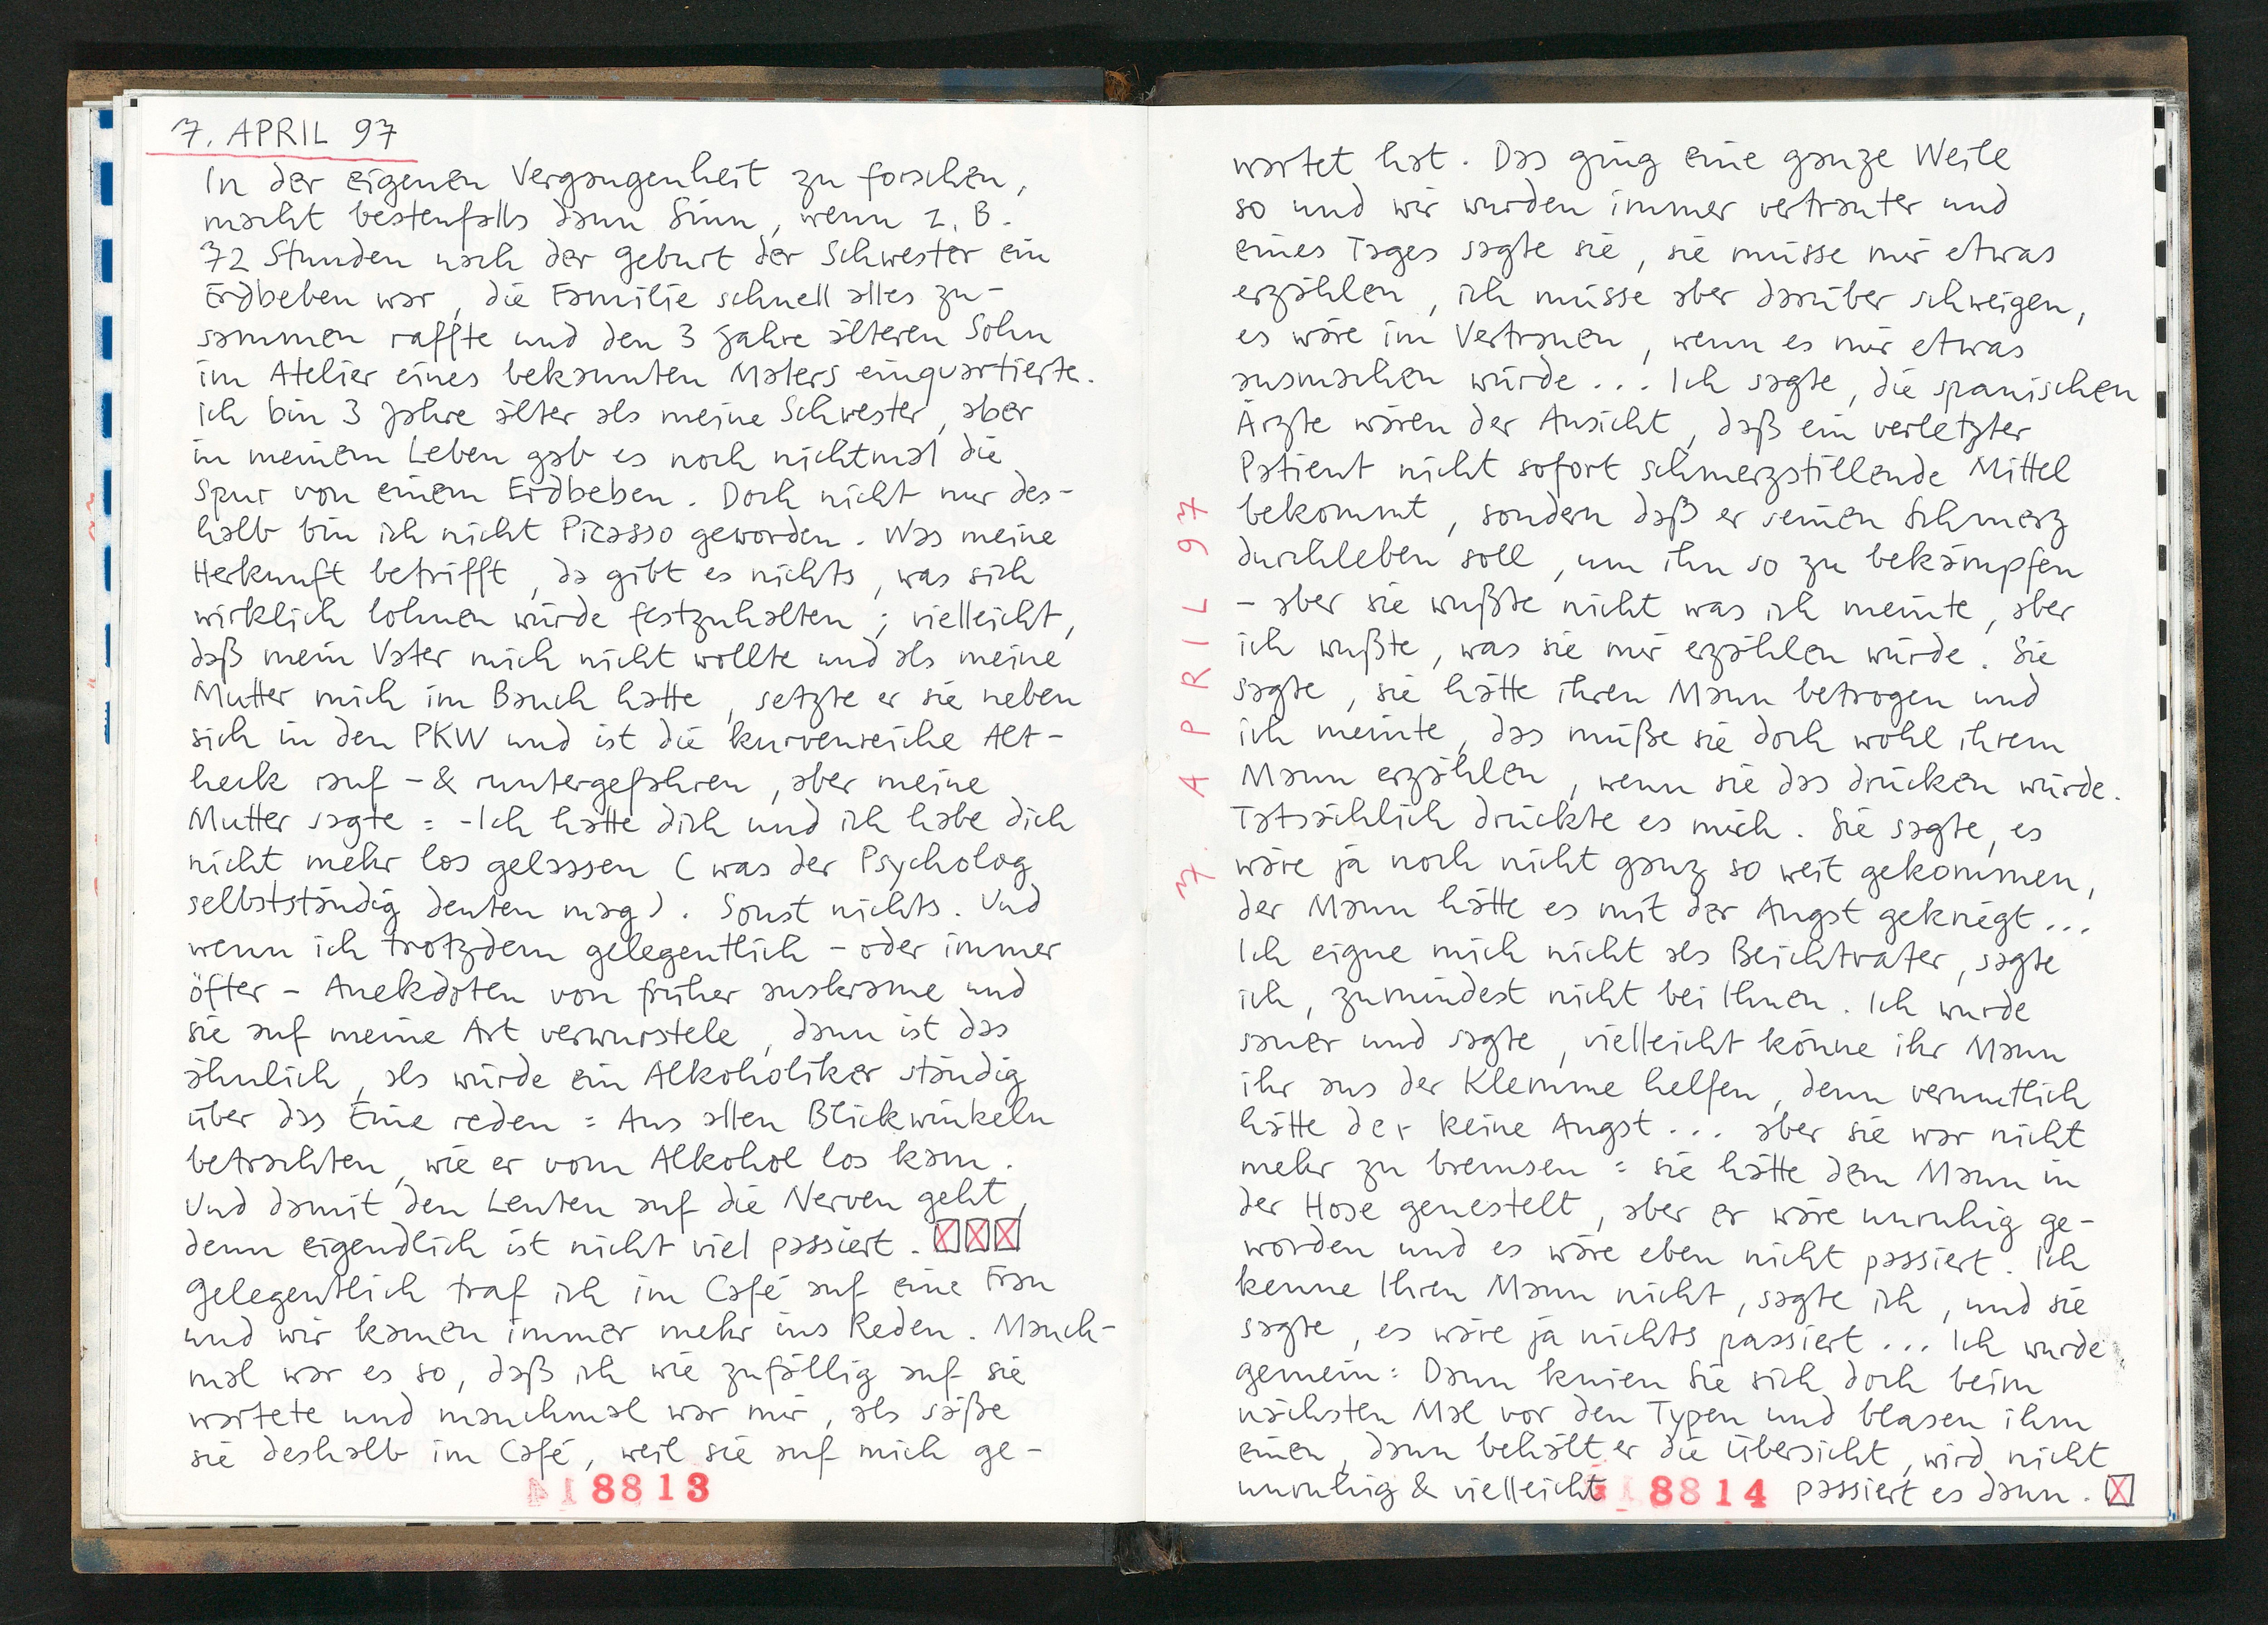 7. APRIL 97
In der eigenen Vergangenheit zu forschen,
macht bestenfalls dann Sinn, wenn z. B.
72 Stunden nach der Geburt der Schwester ein
Erdbeben war, die Familie schnell alles zu-
sammen raffte und den 3 Jahre älteren Sohn
im Atelier eines bekannten Malers einquartierte.
ich bin 3 Jahre älter als meine Schwester, aber
in meinem Leben gab es noch nichtmal die
Spur von einem Erdbeben. Doch nicht nur des-
halb bin ich nicht Picasso geworden. Was meine
Herkunft betrifft, da gibt es nichts, was sich
wirklich lohnen würde festzuhalten; vielleicht,
daß mein Vater mich nicht wollte und als meine
Mutter mich im Bauch hatte, setzte er sie neben
sich in den PKW und ist die kurvenreiche Alt-
heck rauf- & runtergefahren, aber meine
Mutter sagte = -Ich hatte dich und ich habe dich
nicht mehr los gelassen (was der Psycholog
selbstständig deuten mag). Sonst nichts. Und
wenn ich trotzdem gelegentlich - oder immer
öfter - Anekdoten von früher auskrame und
sie auf meine Art verwurstele, dann ist das
ähnlich, als würde ein Alkoholiker ständig
über das Eine reden = Aus allen Blickwinkeln
betrachten, wie er vom Alkohol los kam.
Und damit den Leuten auf die Nerven geht,
denn eigendlich ist nicht viel passiert. ☒☒☒
Gelegentlich traf ich im Café auf eine Frau
und wir kamen immer mehr ins Reden. Manch-
mal war es so, daß ich wie zufällig auf sie
wartete und manchmal war mir, als säße
sie deshalb im Café, weil sie auf mich ge-
18813
7. APRIL 97
wartet hat. Das ging eine ganze Weile
so und wir wurden immer vertrauter und
eines Tages sagte sie, sie müsse mir etwas
erzählen, ich müsse aber darüber schweigen,
es wäre im Vertrauen, wenn es mir etwas
ausmachen würde... Ich sagte, die spanischen
Ärzte wären der Ansicht, daß ein verletzter
Patient nicht sofort schmerzstillende Mittel
bekommt, sondern daß er seinen Schmerz
durchleben soll, um ihn so zu bekämpfen
- aber sie wußte nicht was ich meinte, aber
ich wußte, was sie mir erzählen würde. Sie
sagte, sie hätte ihren Mann betrogen und
ich meinte, das müße sie doch wohl ihrem
Mann erzählen, wenn sie das drücken würde.
Tatsächlich drückte es mich. Sie sagte, es
wäre ja noch nicht ganz so weit gekommen,
der Mann hätte es mit der Angst gekriegt...
Ich eigne mich nicht als Beichtvater, sagte
ich, zumindest nicht bei Ihnen. Ich wurde
sauer und sagte, vielleicht könne ihr Mann
ihr aus der Klemme helfen, denn vermutlich
hätte der keine Angst... aber sie war nicht
mehr zu bremsen = sie hätte dem Mann in
der Hose genestelt, aber er wäre unruhig ge-
worden und es wäre eben nicht passiert. Ich
kenne Ihren Mann nicht, sagte ich, und sie
sagte, es wäre ja nichts passiert... Ich wurde
gemein: Dann knien Sie sich doch beim
nächsten Mal vor den Typen und blasen ihm
einen, dann behält er die Übersicht, wird nicht
unruhig & vielleicht passiert es dann. ☒
18814